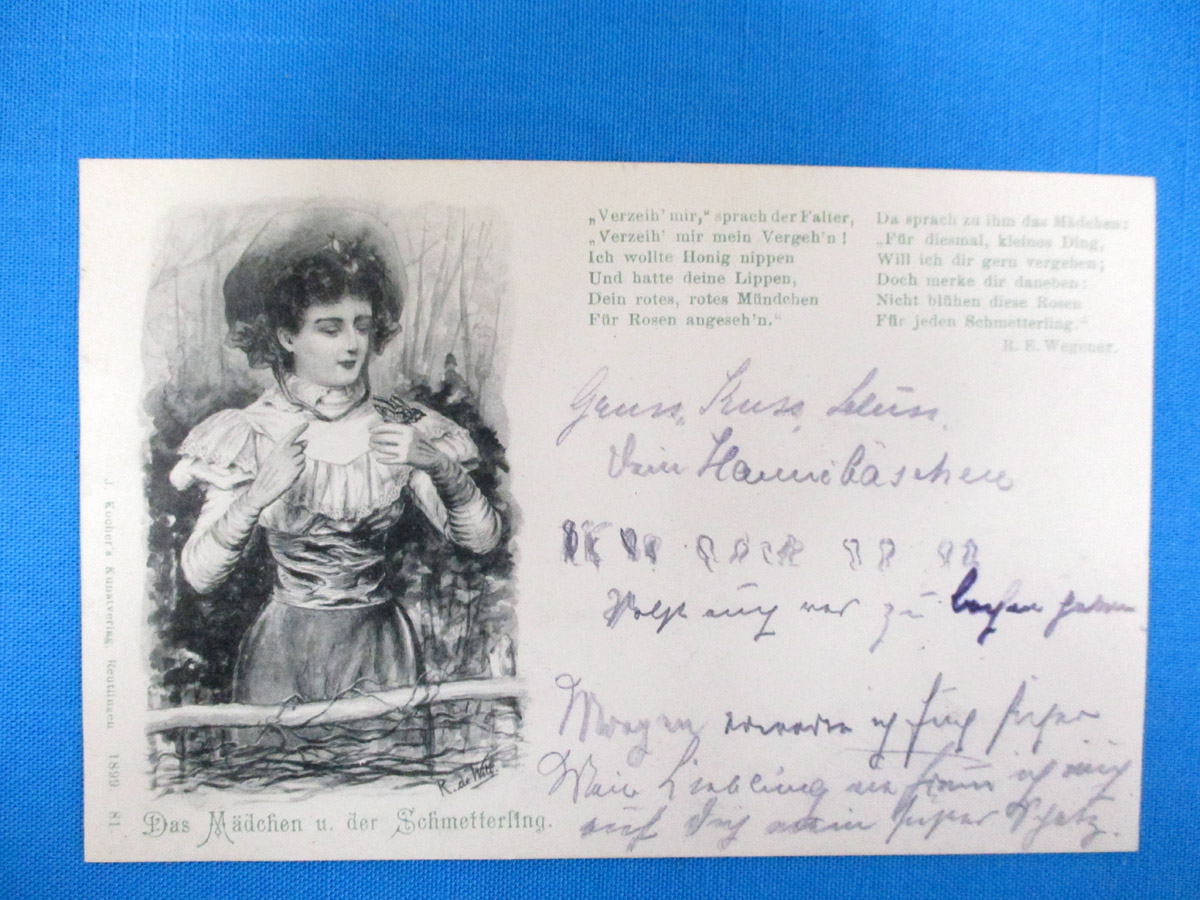 „Verzeih' mir,“ sprach der Falter,
„Verzeih' mir mein Vergeh'n!
Ich wollte Honig nippen
Und hatte deine Lippen,
Dein rotes, rotes Mündchen
Für Rosen angeseh'n.“
Da sprach zu ihm das Mädchen:
„Für diesmal, kleines Ding,
Will ich dir gern vergeben;
Doch merke dir daneben:
Nicht blühen diese Rosen
Für jeden Schmetterling.“
R. E. Wegener.
Gruss, Kuss,
Dein Hannebäschen
zu
Morgen erwarte ich Dich sicher
Mein Liebling ich mich
auf Dich mein süsser Schatz.
R. de Witt.
Das Mädchen u. der Schmetterling.
J. Kocher's Kunstverlag, Reutlingen 1899 81